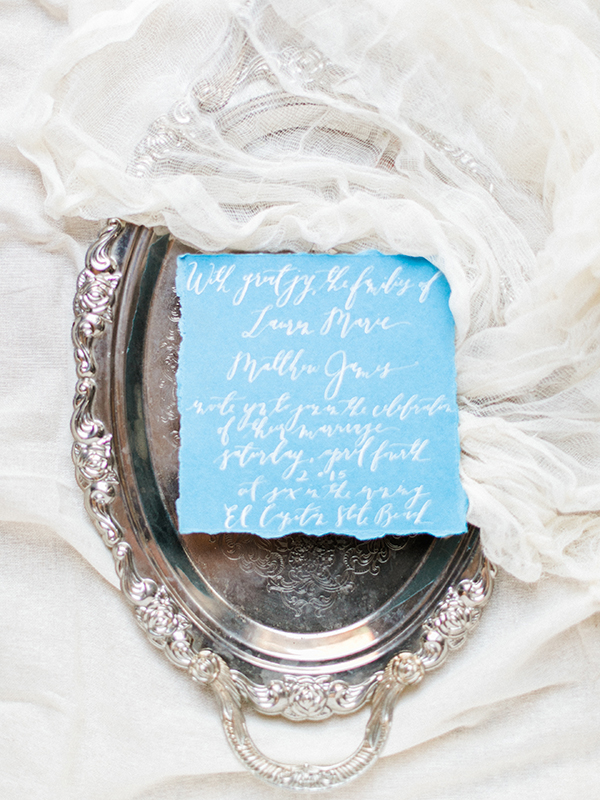 With great joy, the families of
Laura Marie
Matthew James
invite you to join in the celebration
of their marriage
saturday, april fourth
2015
at six in the evening
El Capitan State Beach